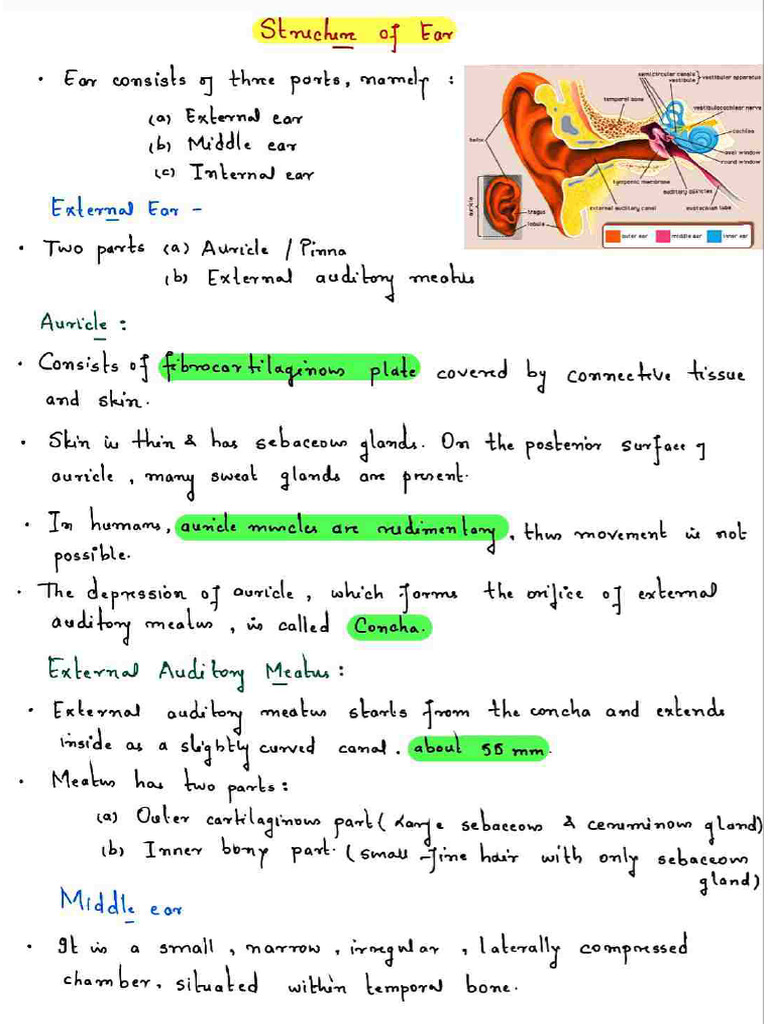 Structure of Ear
• Ear consists of three parts, namely :
(a) External ear
(b) Middle ear
(c) Internal ear
External Ear -
• Two parts (a) Auricle / Pinna
(b) External auditory meatus
semicircular canals
vestibule
vestibular apparatus
temporal bone
vestibulocochlear nerve
helix
cochlea
oval window
round window
tympanic membrane
auditory ossicles
auricle
tragus
external auditory canal
eustachian tube
lobule
outer ear
middle ear
inner ear
Auricle :
• Consists of fibrocartilaginous plate covered by connective tissue
and skin.
• Skin is thin & has sebaceous glands. On the posterior surface of
auricle, many sweat glands are present.
• In humans, auricle muscles are rudimentary, thus movement is not
possible.
• The depression of auricle, which forms the orifice of external
auditory meatus, is called Concha.
External Auditory Meatus :
• External auditory meatus starts from the concha and extends
inside as a slightly curved canal. about 55 mm.
• Meatus has two parts :
(a) Outer cartilaginous part (Large sebaceous & ceruminous gland)
(b) Inner bony part. (small fine hair with only sebaceous
gland)
Middle ear
• It is a small, narrow, irregular, laterally compressed
chamber, situated within temporal bone.